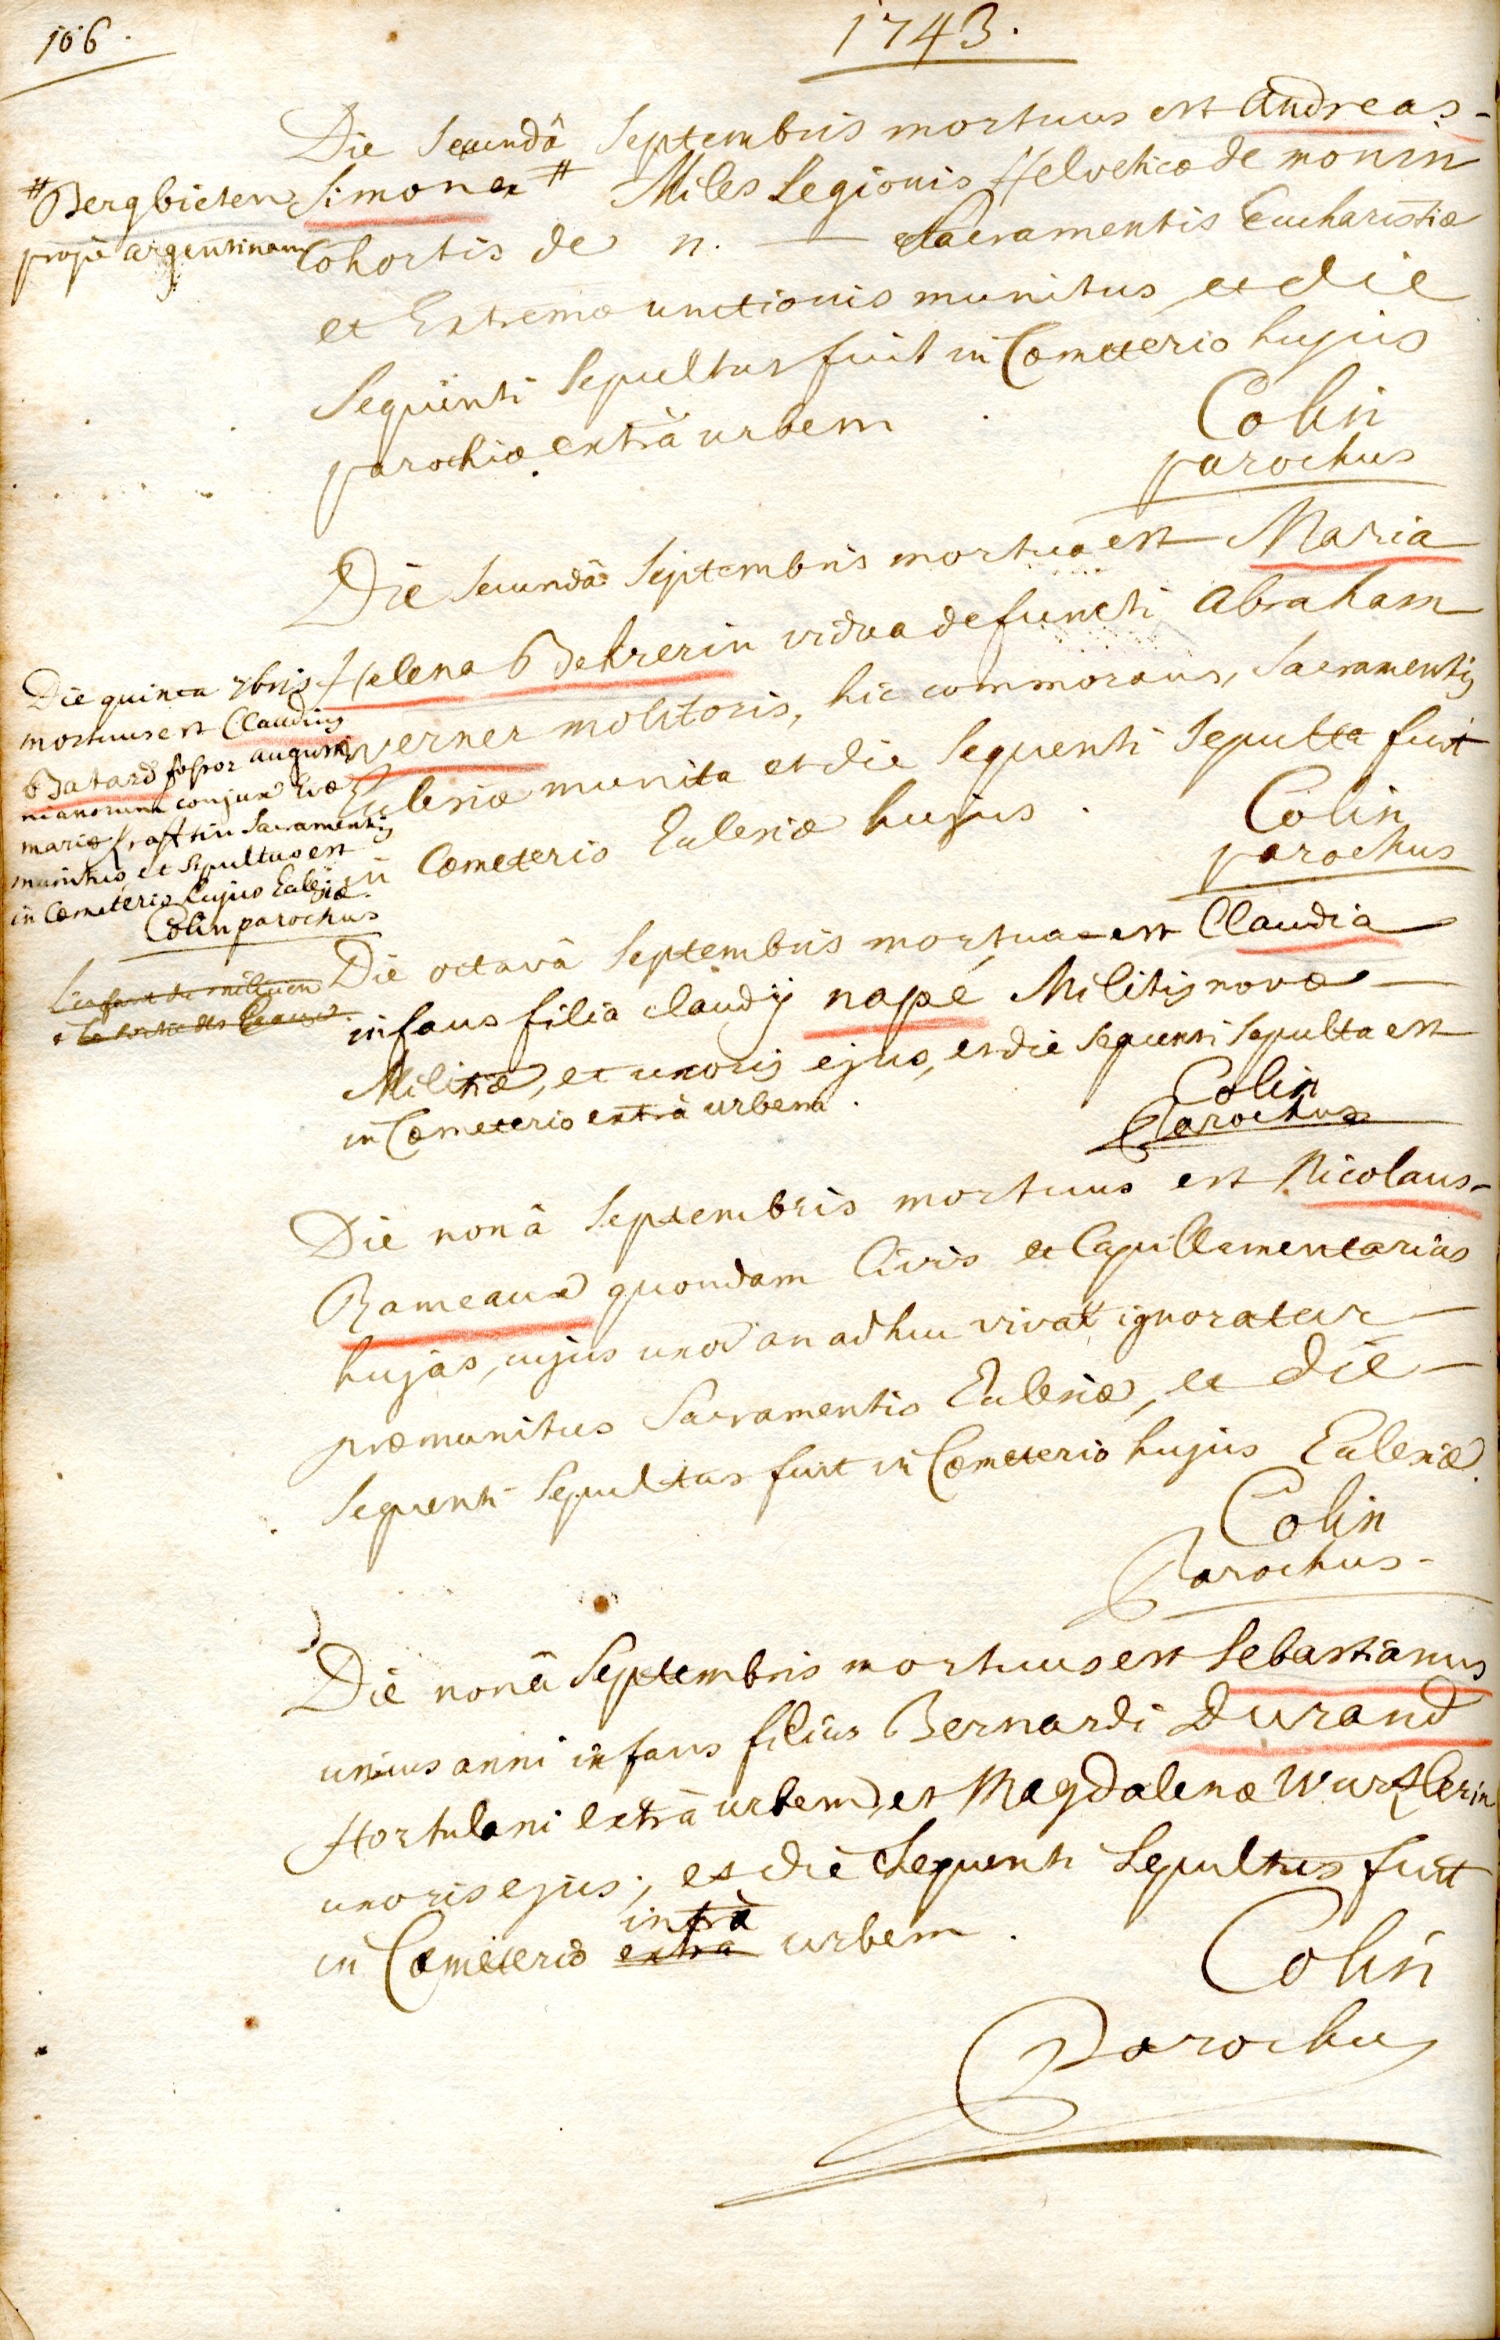 106.
1743.
Die secundâ Septembris mortuus est Andreas
Simon ex # Miles Legionis Helveticæ de monin
# Bergbieten
prope argentinam
Cohortis de n. — Sacramentis Eucharistiæ
et Extremæ unctionis munitus, et die
Sequenti Sepultus fuit in Cœmeterio hujus
parochiæ extrà urbem
Colin
parochus
Die Secundâ Septembris mortua est Maria
Helena Bekrerin vidua defuncti Abraham
Werner molitoris, hic commorans, Sacramentis
Ecclesiæ munita et die Sequenti Sepulta fuit
in Cœmeterio Ecclesiæ hujus.
Colin
parochus
Die quinta 7bris
mortuus est Claudius
Batard fossor augusti
nianorum conjux Evæ
mariæ Sacramentis
munitus, et Sepultus est
in Cœmeterio hujus Eccleiæ.
Colin parochus
Die octavâ Septembris mortua est Claudia
infans filia claudÿ napé Militis novæ
Militiæ, et uxoris ejus, et die Sequenti Sepulta est
in Cœmeterio extrà urbem.
Colin
Parochus
L'enfant du milicien
Die nonâ Septembris mortuus est Nicolaus
Rameaux quondam Civis et Capillamentarius
hujas, cujus uxor an adhuc vivat ignoratur
præmunitus Sacramentis Ecclesiæ, et die
Sequenti Sepultus fuit in Cœmeterio hujus Ecclesiæ.
Colin
Parochus
Die nonâ Septembris mortuus est Sebastianus
unius anni infans filius Bernardi Durand
Hortulani extrà urbem, et Magdalenæ Wurtzlerin
uxoris ejus; et die Sequenti Sepultus fuit
in Cœmeterio extra intrà urbem.
Colin
Parochus